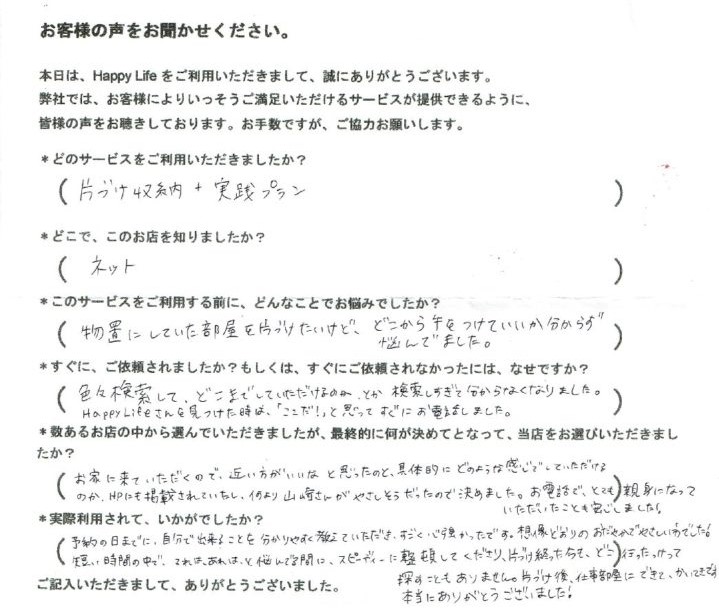 お客様の声をお聞かせください。
本日は、Happy Life をご利用いただきまして、誠にありがとうございます。
弊社では、お客様によりいっそうご満足いただけるサービスが提供できるように、
皆様の声をお聴きしております。お手数ですが、ご協力お願いします。
＊どのサービスをご利用いただきましたか？
( 片づけ収納 + 実践プラン )
＊どこで、このお店を知りましたか？
( ネット )
＊このサービスをご利用する前に、どんなことでお悩みでしたか？
( 物置にしていた部屋を片づけたいけど、どこから手をつけていいか分からず )
悩んでました。
＊すぐに、ご依頼されましたか？もしくは、すぐにご依頼されなかったには、なぜですか？
( 色々検索して、どこまでしていただけるのか、とか 検索しすぎて分からなくなりました。
Happy Lifeさんを見つけた時は、「ここだ！」と思ってすぐにお電話しました。 )
＊数あるお店の中から選んでいただきましたが、最終的に何が決めてとなって、当店をお選びいただきまし
たか？
( お家に来ていただくので、近い方がいいなと思ったのと、具体的にどのような感じでしていただける
のか、HPにも掲載されていたし、何より山崎さんがやさしそうだったので決めました。お電話で、とても ) 親身になって
いただいたことも安心しました！
＊実際利用されて、いかがでしたか？
( 予約の日までに、自分で出来ることを分かりやすく教えていただき、すごく心強かったです。想像どおりのおだやかでやさしい方でした！
短い時間の中で、これは、あれは、と悩んでる間に、スピーディーに整頓してくださり、片づけ終った今でも、どこ ) 行ったっけって
探すこともありません。片づけ後、仕事部屋にできて、かいてきです
ご記入いただきまして、ありがとうございました。
本当にありがとうございました！